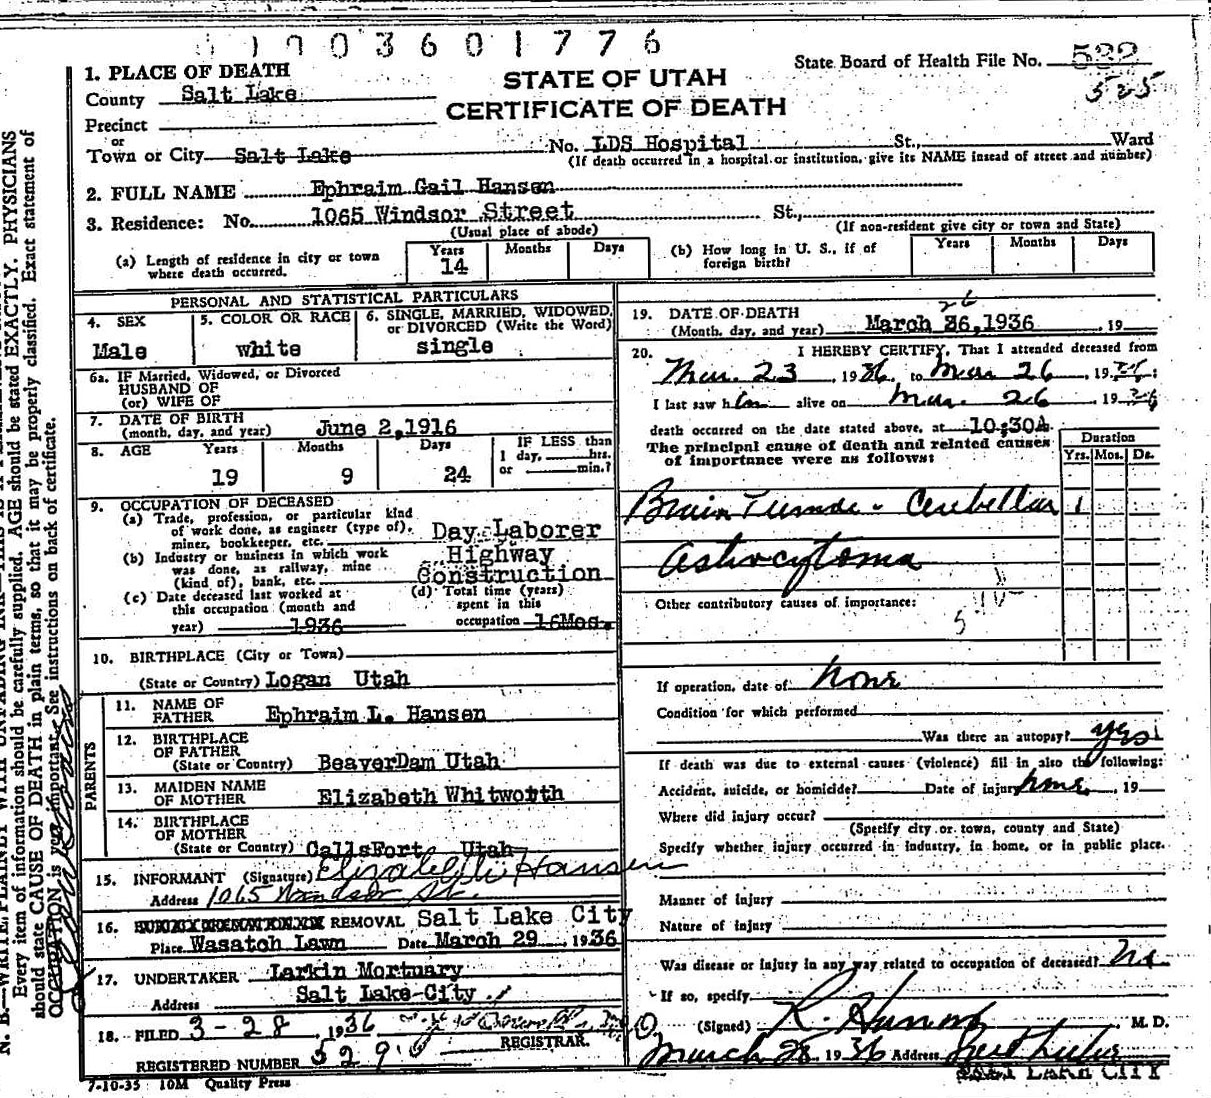 01903601776
State Board of Health File No. 532
525
STATE OF UTAH
CERTIFICATE OF DEATH
1. PLACE OF DEATH
County Salt Lake
Precinct
or
Town or City Salt Lake No. LDS Hospital St., Ward
(If death occurred in a hospital or institution, give its NAME insead of street and number)
2. FULL NAME Ephraim Gail Hansen
3. Residence: No. 1065 Windsor Street St.,
(Usual place of abode) (If non-resident give city or town and State)
(a) Length of residence in city or town where death occurred. Years 14 Months Days
(b) How long in U. S., if of foreign birth? Years Months Days
PERSONAL AND STATISTICAL PARTICULARS
4. SEX Male
5. COLOR OR RACE white
6. SINGLE, MARRIED, WIDOWED, or DIVORCED (Write the Word) single
6a. IF Married, Widowed, or Divorced
HUSBAND OF
(or) WIFE OF
7. DATE OF BIRTH
(month, day, and year) June 2,1916
8. AGE Years 19 Months 9 Days 24 IF LESS than
1 day, hrs.
or min.?
9. OCCUPATION OF DECEASED
(a) Trade, profession, or particular kind
of work done, as engineer (type of),
miner, bookkeeper, etc. Day Laborer
(b) Industry or business in which work
was done, as railway, mine
(kind of), bank, etc. Highway Construction
(c) Date deceased last worked at
this occupation (month and
year) 1936
(d) Total time (years)
spent in this
occupation 16Mos.
10. BIRTHPLACE (City or Town)
(State or Country) Logan Utah
PARENTS
11. NAME OF
FATHER Ephraim L. Hansen
12. BIRTHPLACE
OF FATHER
(State or Country) BeaverDam Utah
13. MAIDEN NAME
OF MOTHER Elizabeth Whitworth
14. BIRTHPLACE
OF MOTHER
(State or Country) CallsFort Utah
15. INFORMANT (Signature) Elizabeth Hansen
Address 1065 Windsor St.
16. REMOVAL Salt Lake City
Place Wasatch Lawn Date March 29, 1936
17. UNDERTAKER Larkin Mortuary
Address Salt Lake City
18. FILED 3-28, 1936
REGISTRAR.
REGISTERED NUMBER 529
7-10-35 10M Quality Press
26
19. DATE OF DEATH
(Month, day, and year) March 26,1936, 19
20. I HEREBY CERTIFY, That I attended deceased from
Mar. 23, 1936, to Mar 26, 1936;
I last saw him alive on Mar. 26, 1936
death occurred on the date stated above, at 10:30A
The principal cause of death and related causes
of importance were as follows:
Duration
Yrs. Mos. Ds.
Brain Tumor - Cerebellar 1
Astrocytoma
Other contributory causes of importance:
If operation, date of none
Condition for which performed
Was there an autopsy? yes
If death was due to external causes (violence) fill in also the following:
Accident, suicide, or homicide? Date of injury none, 19
Where did injury occur?
(Specify city or town, county and State)
Specify whether injury occurred in industry, in home, or in public place.
Manner of injury
Nature of injury
Was disease or injury in any way related to occupation of deceased? No
If so, specify
(Signed) M. D.
March 28, 1936 Address
SALT LAKE CITY
Every item of information should be carefully supplied. AGE should be stated EXACTLY. PHYSICIANS
should state CAUSE OF DEATH in plain terms, so that it may be properly classified. Exact statement of
OCCUPATION is very important. See instructions on back of certificate.